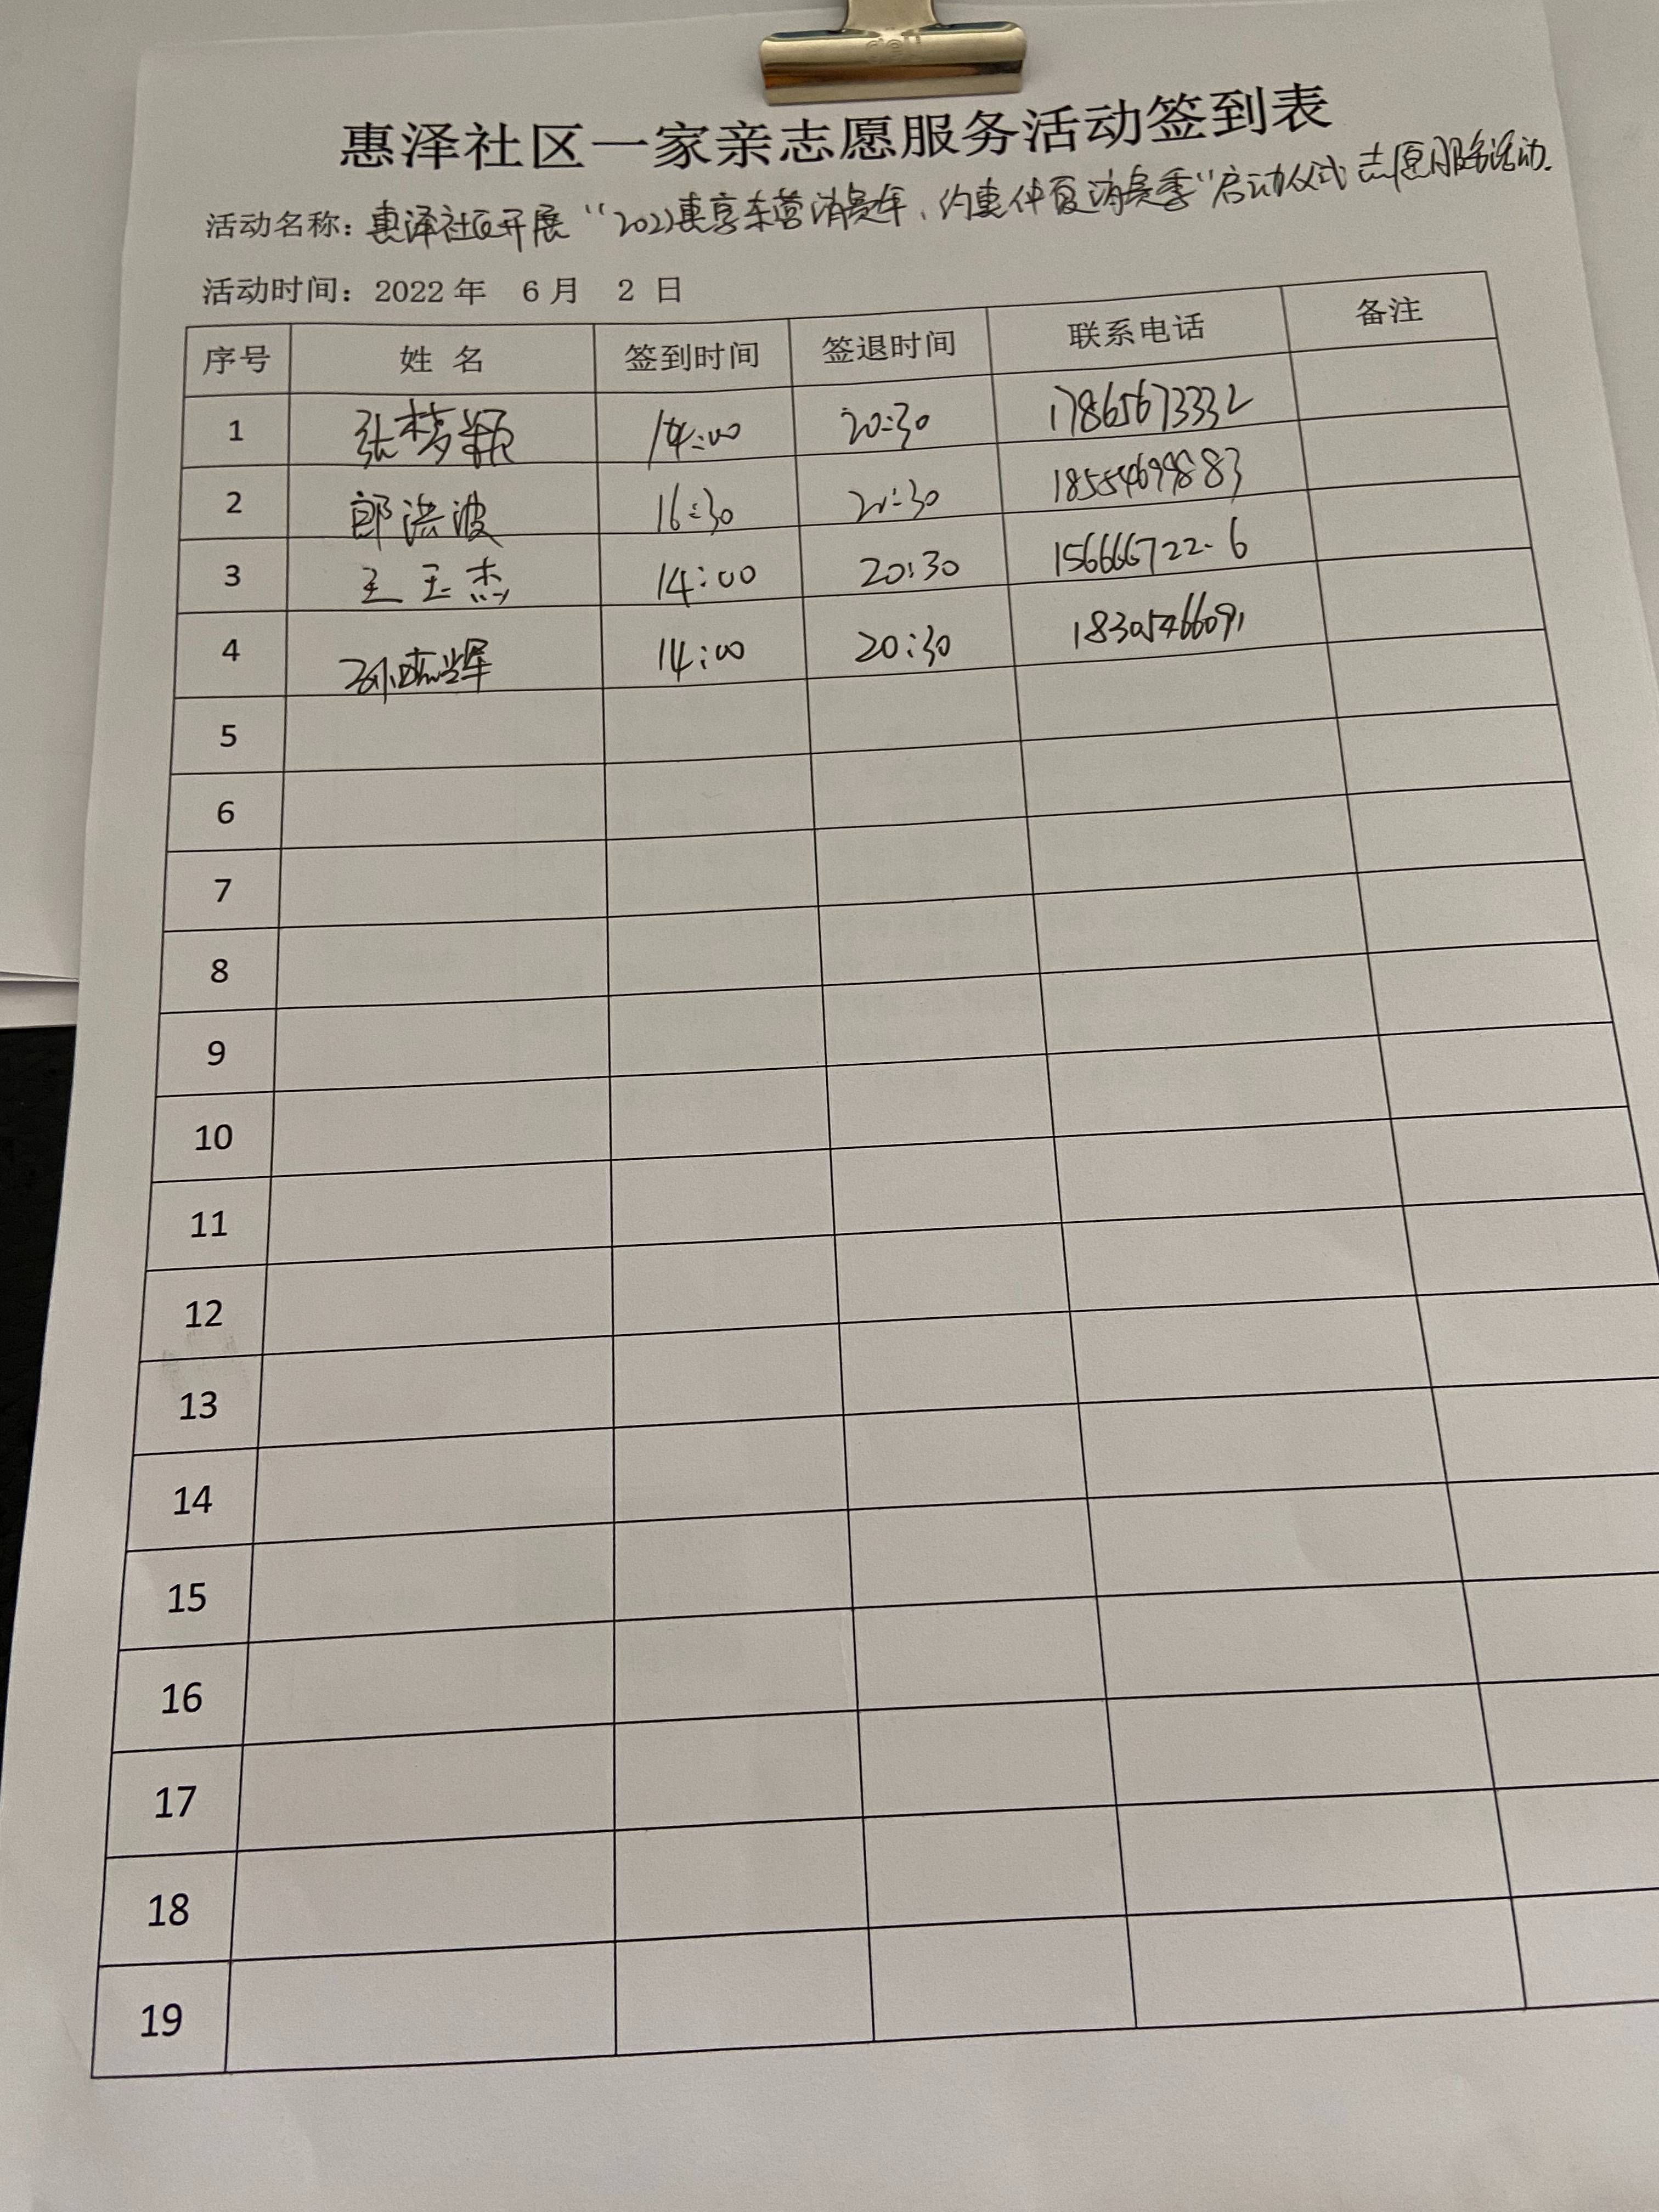 deli
惠泽社区一家亲志愿服务活动签到表
活动名称：惠泽社区开展“2022惠享东营消费年、约惠仲夏消费季”启动仪式志愿服务活动.
活动时间：2022年 6月 2日
序号 姓名 签到时间 签退时间 联系电话 备注
1 张梦颖 14:00 20:30 17865673332
2 郎洪波 16:30 20:30 18554699883
3 王玉杰 14:00 20:30
4 14:00 20:30 18305466091
5
6
7
8
9
10
11
12
13
14
15
16
17
18
19